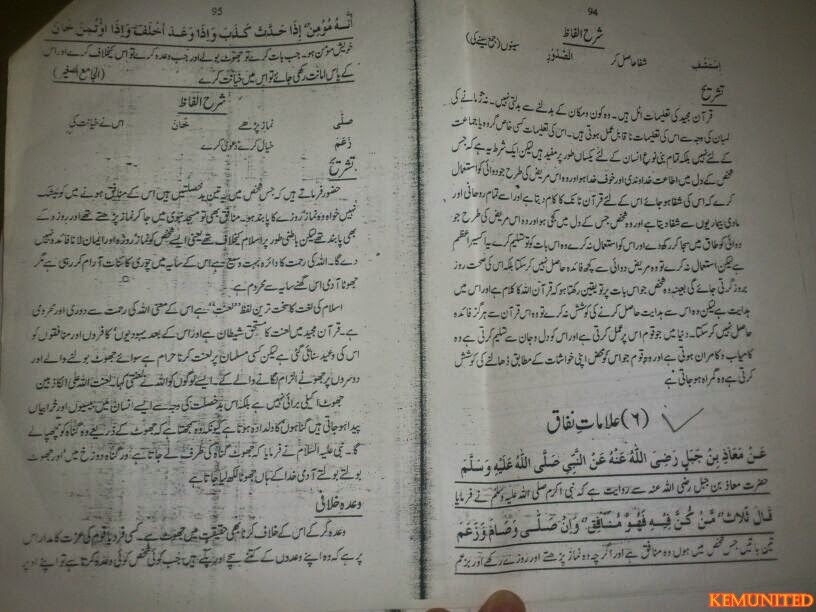 94
شرح الفاظ
اِسْتَشْفِ شفا حاصل کر الصُّدُوْرِ سینوں (جمع سینے کی)
تشریح
قرآن مجید کی تعلیمات اٹل ہیں۔ وہ کون و مکان کے بدلنے سے بدلتی نہیں۔ نہ زمانے کی
کی وجہ سے اس کی تعلیمات ناقابل عمل ہوتی ہیں۔ اس کی تعلیمات کسی خاص گروہ یا جماعت
کے لئے نہیں بلکہ تمام بنی نوع انسان کے لئے یکساں طور پر مفید ہیں لیکن ایک شرط یہ ہے کہ جس
شخص کے دل میں اطاعت خداوندی اور خوف خدا ہو اور وہ اس مریض کی طرح جو دوائی کو استعمال
کرے کہ اس کی شفا ہو جائے اس کے لئے قرآن ٹانک کا کام دیتا ہے اور اسے تمام روحانی اور
مادی بیماریوں سے شفا دیتا ہے اور وہ شخص جس کے دل میں کجی ہو اور وہ اس مریض کی طرح جو
دوائی کو طاق میں سجا کر رکھ دے اور اس کو استعمال نہ کرے وہ اس بات کو تو تسلیم کرے یہ اکسیر اعظم
ہے لیکن استعمال نہ کرے تو وہ مریض دوائی سے کچھ فائدہ حاصل نہیں کر سکتا بلکہ اس کی صحت روز
بروز گرتی جائے گی بعینہٖ وہ شخص جو اس بات پر تو یقین رکھتا ہو کہ قرآن اللہ کا کلام ہے اور اس میں
ہدایت ہے لیکن وہ اس سے ہدایت حاصل کرنے کی کوشش نہ کرے تو وہ اس قرآن سے ہرگز فائدہ
حاصل نہیں کر سکتا۔ دنیا میں جو قوم اس پر عمل کرتی ہے اور اس کو دل و جان سے تسلیم کرتی ہے وہ
کامیاب و کامران ہوتی ہے اور وہ قوم جو اس کو محض اپنی خواہشات کے مطابق ڈھالنے کی کوشش
کرتی ہے وہ گمراہ ہو جاتی ہے
(۶) علامات نفاق
عَنْ مَعَاذِ بِنْ جَبَلٍ رَضِیَ اللّٰهُ عَنْهُ عَنِ النَّبِیِّ صَلَّی اللّٰهُ عَلَیْهِ وَسَلَّمَ
حضرت معاذ بن جبل رضی اللہ عنہ سے روایت ہے کہ نبی اکرم صلی اللہ علیہ وسلم نے فرمایا
قَالَ ثَلَاثٌ مَّنْ کُنَّ فِیْهِ فَهُوَ مُنَافِقٌ وَاِنْ صَلّٰی وَصَامَ وَزَعَمَ
تین باتیں جس شخص میں ہوں وہ منافق ہے اور اگرچہ وہ نماز پڑھتے اور روزے رکھے اور بزعم
95
اَنَّهُ مُؤْمِنٌ اِذَا حَدَّثَ کَذَبَ وَاِذَا وَعَدَ اَخْلَفَ وَاِذَا اوْتُمِنَ خَانَ
خویش مؤمن ہو۔ جب بات کرے تو جھوٹ بولے اور جب وعدہ کرے تو اس کیخلاف کرے اور اس
کے پاس امانت رکھی جائے تو اس میں خیانت کرے (الجامع الصغیر)
شرح الفاظ
صَلّٰی نماز پڑھے خَانَ اس نے خیانت کی
زَعَمَ خیال کرے دعویٰ کرے
تشریح
حضور فرماتے ہیں کہ جس شخص میں یہ تین بد خصلتیں ہیں اس کے منافق ہونے میں کوئی شک
نہیں خواہ وہ نماز روزے کا پابند ہو۔ منافق بھی تو مسجد نبوی میں جا کر نماز پڑھتے تھے اور روزہ کے
بھی پابند تھے لیکن باطنی طور پر اسلام کیخلاف تھے یعنی ایسے شخص کو نماز روزہ اور ایمان لانا فائدہ نہیں
دے گا۔ اللہ کی رحمت کا دائرہ بہت وسیع ہے اس کے سایہ میں پوری کائنات آرام کر رہی ہے مگر
جھوٹا آدمی اس گھنے سایہ سے محروم ہے
اسلام کی لغت کا سخت ترین لفظ "لعنت" ہے اس کے معنی اللہ کی رحمت سے دوری اور محرومی
ہے۔ قرآن مجید میں لعنت کا مستحق شیطان ہے اور اس کے بعد یہودیوں کافروں اور منافقوں کو
اس کی وعید سنائی گئی ہے لیکن کسی مسلمان پر لعنت کرنا حرام ہے سوائے جھوٹ بولنے والے اور
دوسروں پر جھوٹے الزام لگانے والے کے۔ ایسے لوگوں کو اللہ نے لعنتی کہا۔ لعنت اللہ علی الکاذبین
جھوٹ اکیلی برائی نہیں ہے بلکہ اس بد خصلت کی وجہ سے ایسے انسان میں بیسیوں اور خرابیاں
پیدا ہو جاتی ہیں گناہوں کا دلدادہ ہوتا ہے کیونکہ وہ سمجھتا ہے کہ جھوٹ کے ذریعے وہ گناہ کو چھپا لے
گا۔ نبی علیہ السلام نے فرمایا کہ جھوٹ گناہ کی طرف لے جاتا ہے اور گناہ دوزخ میں اور جھوٹ
بولتے بولتے آدمی خدا کے ہاں جھوٹا لکھ لیا جاتا ہے
وعدہ خلافی
وعدہ کر کے اس کے خلاف کرنا بھی حقیقت میں جھوٹ ہے۔ کسی فرد یا قوم کی عزت کا مدار اس
پر ہے کہ وہ اپنے وعدوں کے کتنے سچے اور پکے ہیں جب کوئی شخص کوئی وعدہ کرتا ہے تو اپنے اوپر
KEMUNITED